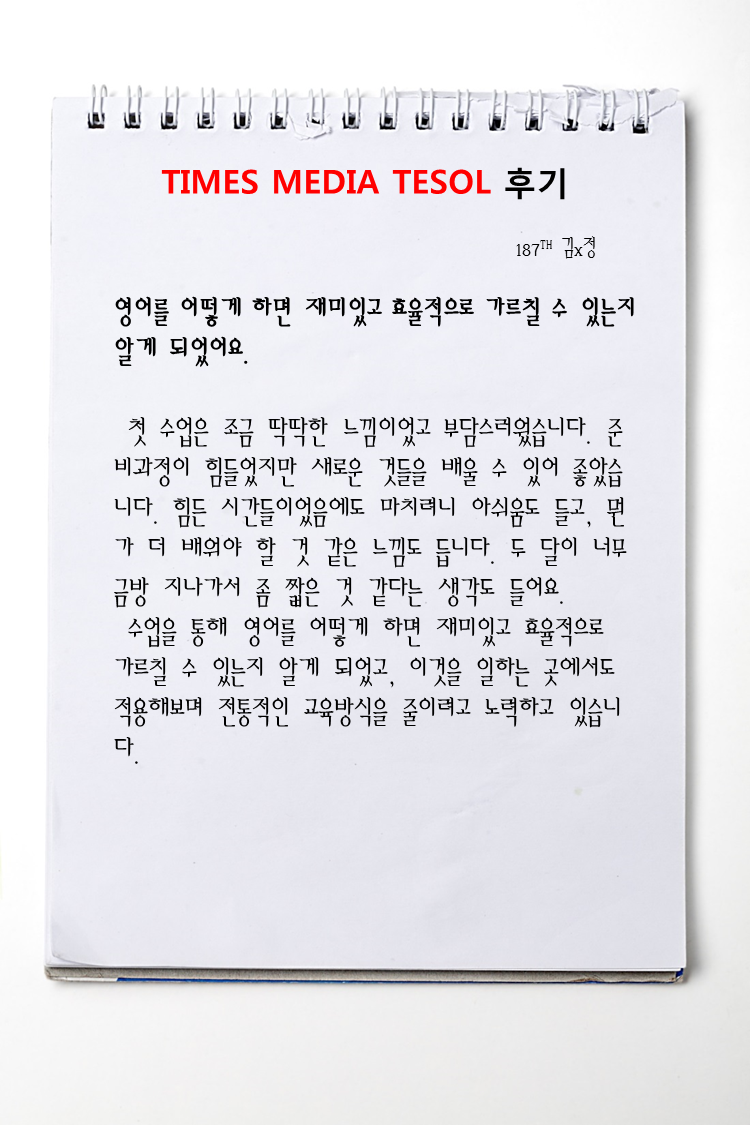 TIMES MEDIA TESOL 후기
187TH 김x정
영어를 어떻게 하면 재미있고 효율적으로 가르칠 수 있는지
알게 되었어요.
첫 수업은 조금 딱딱한 느낌이었고 부담스러웠습니다. 준
비과정이 힘들었지만 새로운 것들을 배울 수 있어 좋았습
니다. 힘든 시간들이었음에도 마치려니 아쉬움도 들고, 뭔
가 더 배워야 할 것 같은 느낌도 듭니다. 두 달이 너무
금방 지나가서 좀 짧은 것 같다는 생각도 들어요.
수업을 통해 영어를 어떻게 하면 재미있고 효율적으로
가르칠 수 있는지 알게 되었고, 이것을 일하는 곳에서도
적용해보며 전통적인 교육방식을 줄이려고 노력하고 있습니
다.